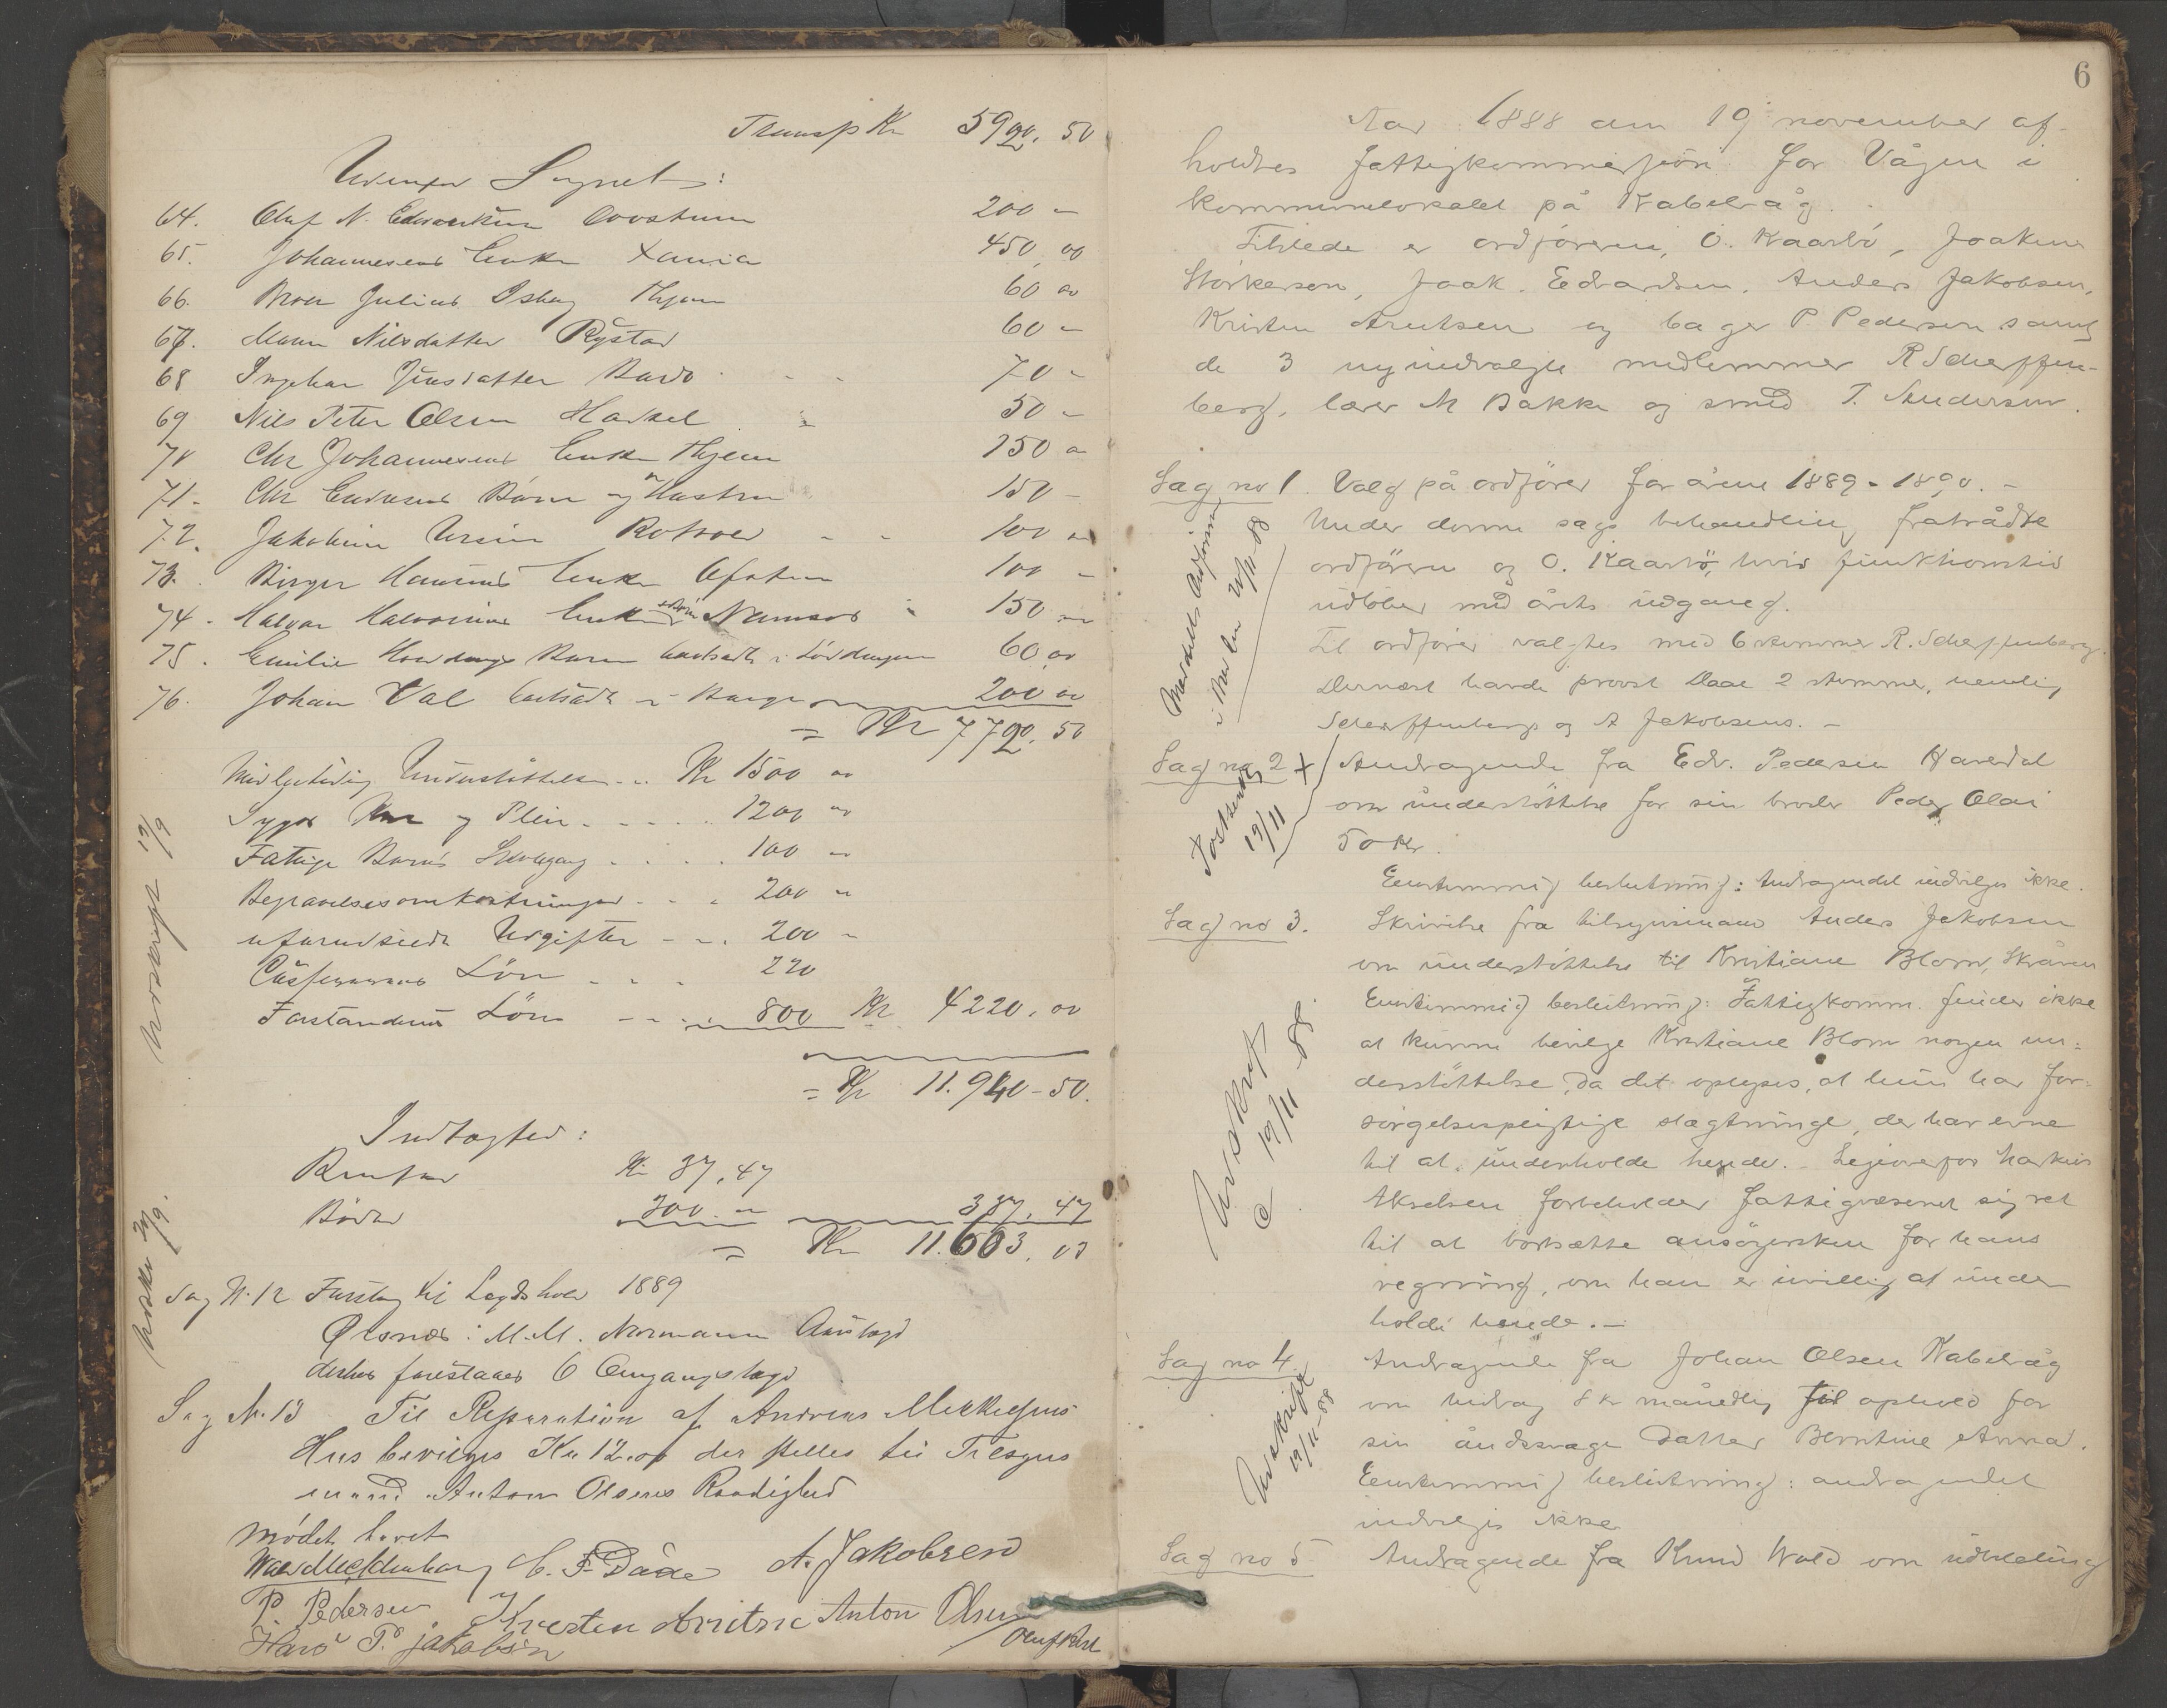 Transp Kr 5990. 50
Udenfor Sognet:
64. Oluf N. Edvardsen 200 -
65. Johannesens Enke Xania 450,00
66. Julius Hjem 60 00
67. Maren Nilsdatter Rystad 60 -
68 Ingebor Jensdatter 70 -
69 Nils Peter Olsen Hadsel 50 -
70 Chr Johannesens Enke Hjem 150 00
71. Chr Børn og Hustru 150 -
72. Jakobine Ursin 100 00
73. Birger Hansens Enke 100 -
74. Halvor Enke Namsos 150 00
75. Emilie Barn bortsadt i Lødingen 60 00
76. Johan Val bortsadt i 200 00
= Kr 7790. 50
Midlertidig Understøttelse Kr 1500 00
Syges Kur og Pleie 1200 00
Fattige Børns Skolegang 100 00
Begravelsesomkostninger 200 "
uforudseede Udgifter 200 -
Cassererens Løn 220
Forstanderens Løn 800 Kr 4220,00
= Kr 11.940-50.
Indtægter:
Renter Kr 37,47
Bøder 300 - 337,47
= Kr 11.603,03
Udskrift 19/9
Sag N. 12 Forslag til Lægdshold 1889
Ørsnes: M.M. Normann Aarslægd
derhos foreslaaes 6 Omgangslægd
Sag N. 13 Til Reparation af Andreas Mikkelsens
Hus bevilges Kr 12.00 der stilles til Tilsyns
mand Anton Olsens Raadighed
Mødet hævet
C. F. Daae A. Jakobsen
P. Pedersen Kresten Arntsen Anton Olsen
Hans P. Jakobsen
6
Aar 1888 den 19 november af-
holdtes fattigkommissjon for Vågen i
kommunelokalet på Kabelvåg.
Tilstede er ordføreren, O. Kaarbø, Joakim
Størkersen, Joak. Edvardsen, Anders Jakobsen,
Kristen Arntsen og bager P Pedersen samt
de 3 nyindvalgte medlemmer R Scherffen-
berg, lærer M Bakke og smed T. Andersen.
Sag no 1. Valg på ordfører for årene 1889-1890. -
Under denne sags behandling fratrådte
ordføreren og O. Kaarbø, hvis funktionstid
udløber med årets udgang.
Til ordfører valgtes med 6 stemmer R. Scherffenberg.
Dernæst havde provst Daae 2 stemmer, nemlig
Scherffenbergs og A Jakobsens. -
Meddelt Ordføreren
20/11 88
Sag no 2 Andragende fra Edv. Pedersen
om understøttelse for sin broder Peder Olai
50 kr.
19/11
Enstemmig beslutning: Andragendet indvilges ikke.
Sag no 3. Skrivelse fra tilsynsmand Anders Jakobsen
om understøttelse til Kristiane Blom, Skråven
Enstemmig beslutning: Fattigkomm. finder ikke
at kunne bevilge Kristiane Blom nogen un-
derstøttelse, da det oplyses, at hun har for-
sørgelsespligtige slægtninge, der har evne
til at underholde hende. - Ligeoverfor Markus
Akselsen forbeholder fattigvæsenet sig ret
til at bortsætte ansøgersken for hans
regning, om han er uvillig at under
holde hende. -
Udskrift
19/11 - 88.
Sag no 4. Andragende fra Johan Olsen Kabelvåg
om bidrag 8 kr månedlig til ophold for
sin åndssvage datter Berntine Anna.
Enstemmig beslutning: andragendet
indvilges ikke
Udskrift
19/11-88
Sag no 5 Andragende fra Knud Wold om